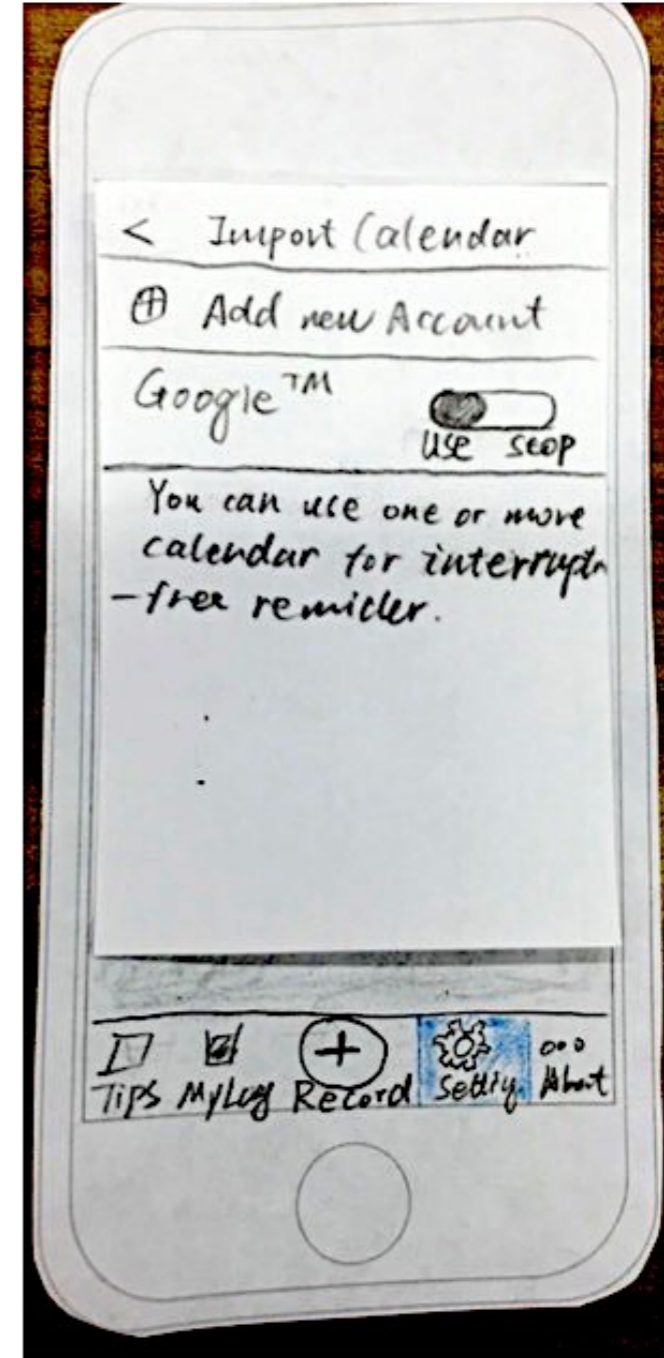 < Import Calendar
⊕ Add new Account
Google™
Use Stop
You can use one or more
calendar for interruptn
-free remider.
Tips MyLog Record Settig. About